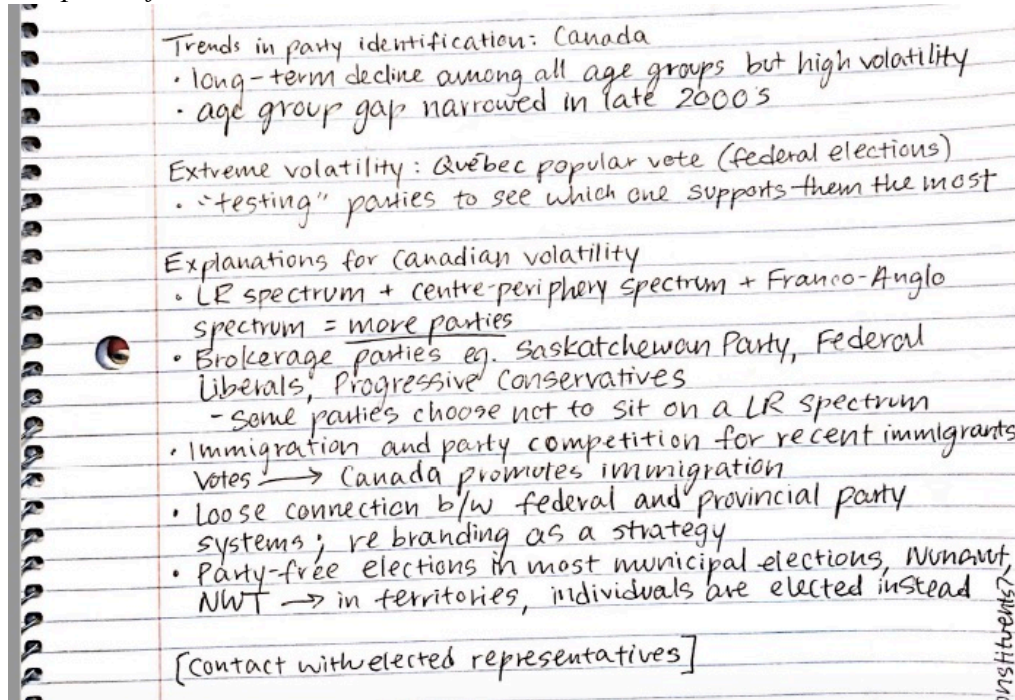 Trends in party identification: Canada
• long-term decline among all age groups but high volatility
• age group gap narrowed in late 2000's
Extreme volatility: Québec popular vote (federal elections)
• "testing" parties to see which one supports them the most
Explanations for Canadian volatility
• LR spectrum + centre-periphery spectrum + Franco-Anglo
spectrum = more parties
• Brokerage parties eg. Saskatchewan Party, Federal
Liberals, Progressive Conservatives
- some parties choose not to sit on a LR spectrum
• Immigration and party competition for recent immigrants
votes → Canada promotes immigration
• Loose connection b/w federal and provincial party
systems; re branding as a strategy
• Party-free elections in most municipal elections, Nunavut,
NWT → in territories, individuals are elected instead
[contact with elected representatives]